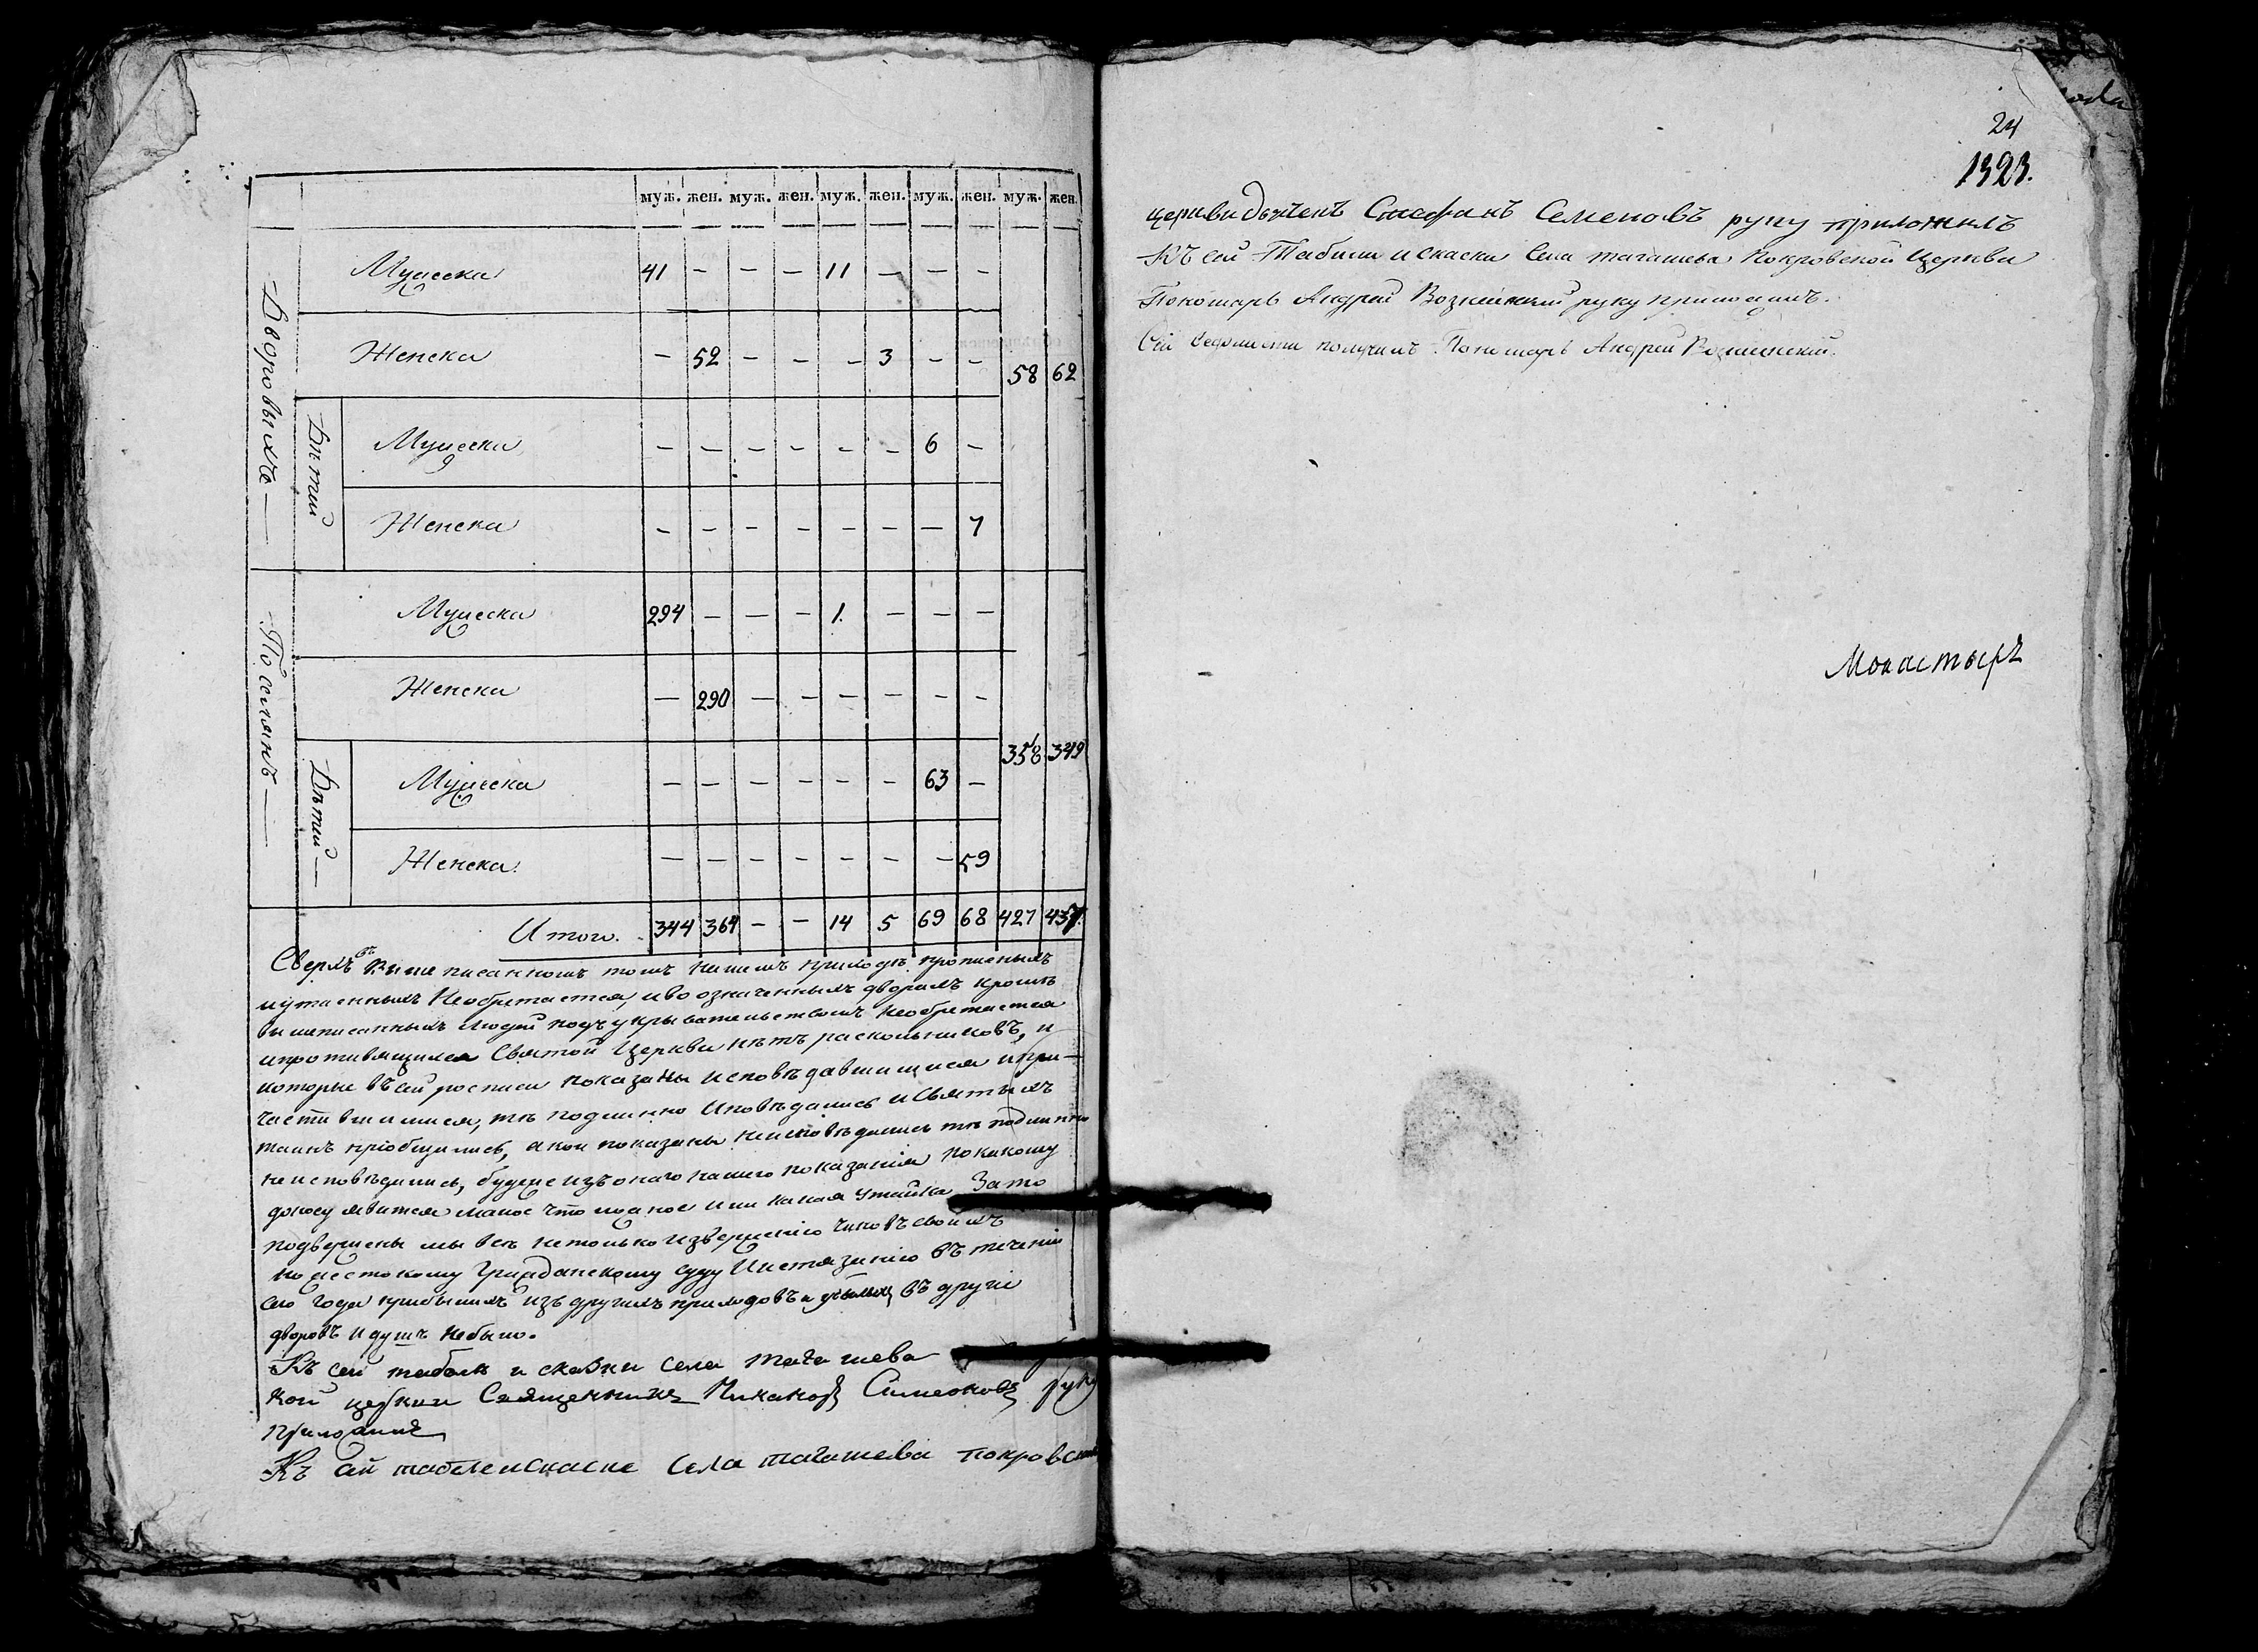 муж. жен. муж. жен. муж. жен. муж. жен. муж. жен.
Дворовыхъ
Мужеска 41 – – – 11 – – –
Женска – 52 – – – 3 – – 58 62
Дѣтей
Мужеска – – – – – – 6 –
Женска – – – – – – – 7
Поселянъ
Мужеска 294 – – – 1. – – –
Женска – 290 – – – – – –
358 349
Дѣтей
Мужеска – – – – – – 63 –
Женска. – – – – – – – 59
Итого. 344 364 – – 14 5 69 68 427 437.
Сверхъ въ выше писанномъ томъ нашемъ приходѣ прописныхъ
и утаенныхъ необретается, и во означенныхъ дворахъ кромѣ
вышеписанныхъ людей подъ укрывательствомъ необретается
и противящихся Святой Церкви нѣтъ раскольниковъ, и
которые въ сей росписи показаны исповѣдавшимися и при-
частившимися, тѣ подлинно исповѣдались и Святыхъ
таинъ приобщились, а кои показаны неисповѣдались тѣ подлинно
не исповѣдались, будеже изъ онаго нашего показанія по какому
доносу явится малое что ложное или какая утайка За то
подвержены мы всѣ нетолько изверженію чиновъ своихъ
но жестокому Гражданскому суду И истязанію въ теченіи
сего года прибылыхъ изъ другихъ приходовъ и убылыхъ въ другіе
дворовъ и душъ небыло.
Къ сей табелѣ и сказки села таташева
кой церкви Священникъ Никаноръ Симеоновъ руку
приложилъ
Къ сей табели искаске села таташева покровской
24
1323.
церкви дьячекъ Стефанъ Семеновъ руку приложилъ
Къ сей Табили и скаски Села таташева Покровской Церкви
Понамарь Андрей Вознесенский руку приложилъ.
Сіи ведомости получилъ Понамарь Андрей Вознесенский.
Монастырь